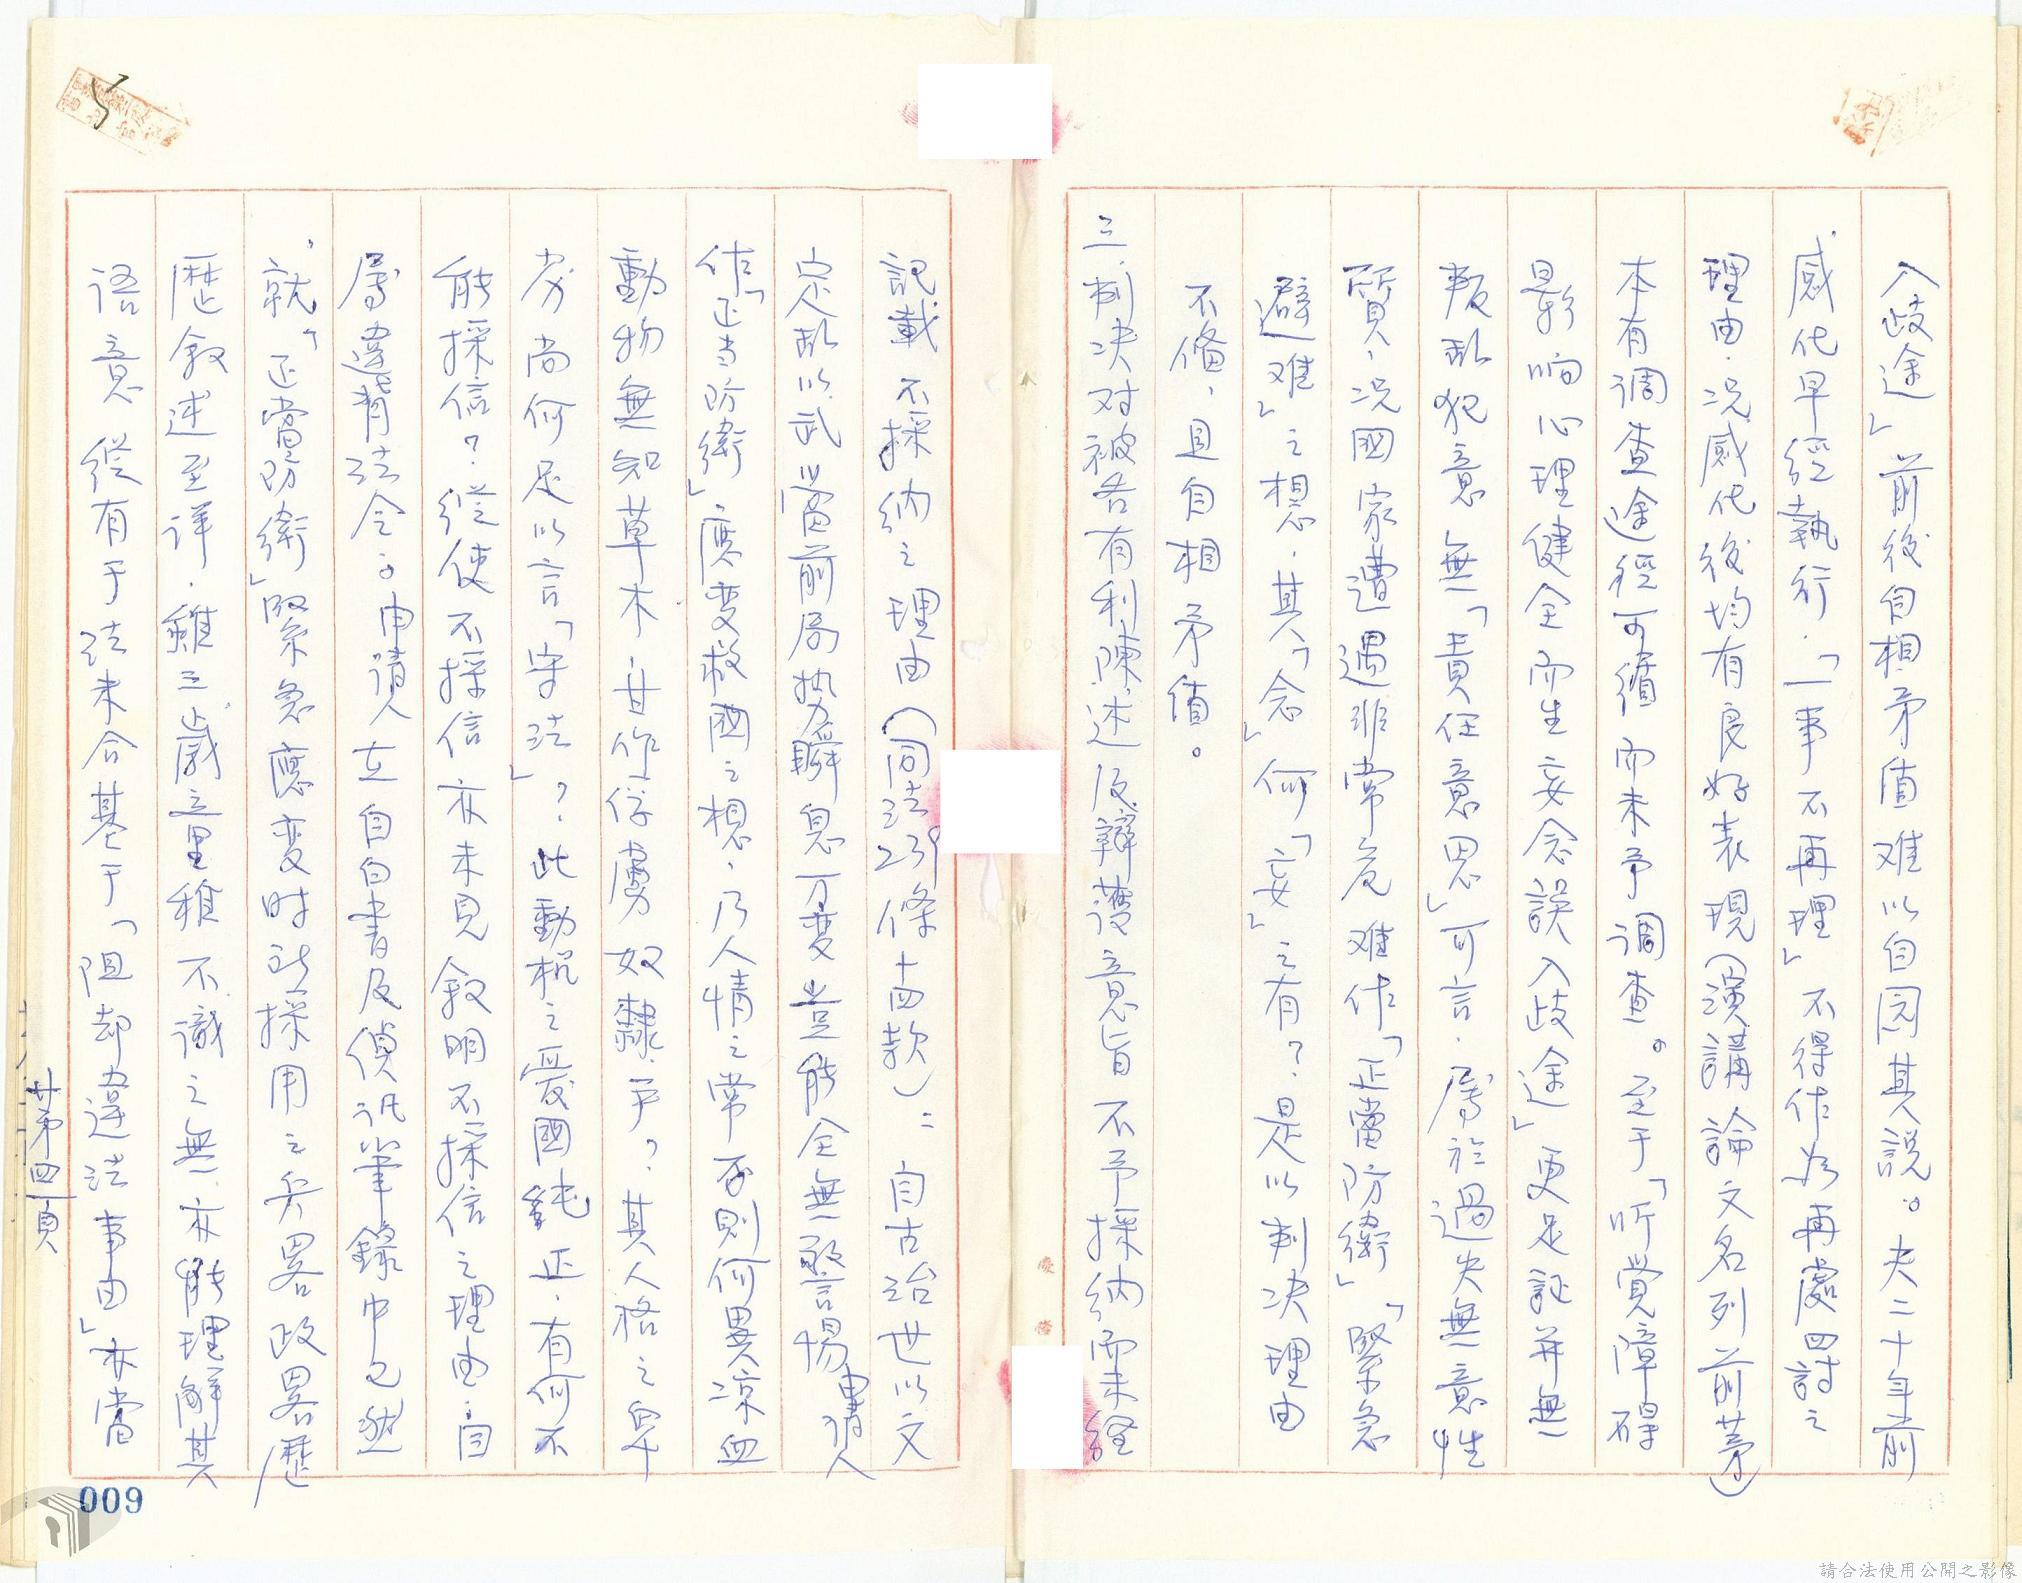 入歧途」前後自相矛盾难以自圆其說。夫二十年前
感化早經執行.「一事不再理」不得作為再處罰之
理由.况感化後均有良好表現(演講論文名列前茅)
本有調查途徑可循而未予調查。至于「听覚障碍
影响心理健全而生妄念誤入歧途」更足証并無
叛乱犯意無「責任意思」可言.屬於過失無意性
質,况國家遭遇非常危难作「正當防衛」「緊急
避难」之想.其「念」何「妄」之有?是以判决理由
不備,且自相矛盾。
三.判决对被告有利陳述及辯護意旨不予採納而未經
記載不採納之理由(同法239條十四款):自古治世以文
定乱以武當前局势瞬息万變豈能全無敬言惕申請人
作「正当防衛」應变救國之想,乃人情之常否則何異凉血
動物無知草木.甘作俘虜奴隸乎?其人格之卑
劣尚何足以言「守法」?此動机之爱國純正.有何不
能採信?縱使不採信亦未見敘明不採信之理由.自
屬違背法令。申請人在自白書及偵訊筆錄中已然
就「正當防衛」緊急應变時所採用之兵畧政畧歷
歷敘述至详.雖三歲童稚不識之無亦能理解其
語意縱有于法未合基于「阻却違法事由」亦當
第四頁
009
請合法使用公開之影像